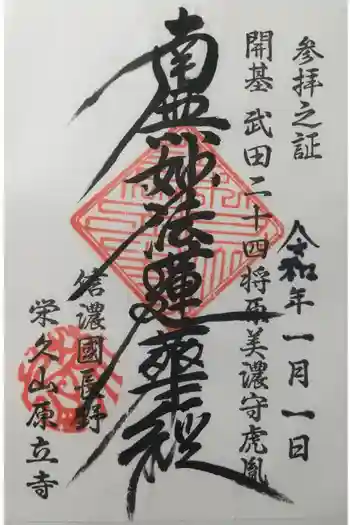 参拝之証
開基 武田二十四将原美濃守虎胤
令和年一月一日
南無妙法蓮華経
信濃國長野
栄久山原立寺